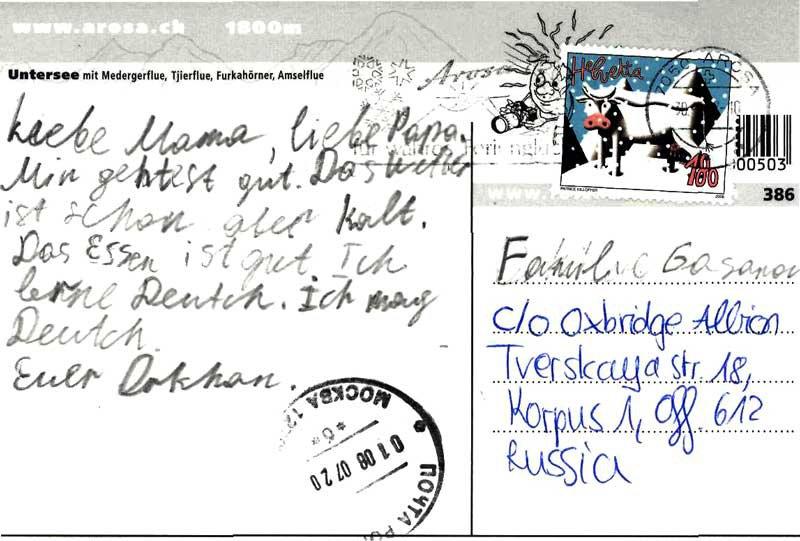 www.arosa.ch 1800m
Untersee mit Medergerflue, Tjierflue, Furkahörner, Amselflue
Liebe Mama, liebe Papa.
Mir gehtest gut. Das Wetter
ist schon aber kalt.
Das Essen ist gut. Ich
lerne Deutch. Ich mag
Deutch.
Euer Orkhan.
МОСКВА
01 08 07 20
ПОЧТА
Arosa
7050 AROSA
Helvetia
100
PATRICE KILLOFFER
00503
386
Familie Gasanov
c/o Oxbridge Albion
Tverskaya str. 18,
Korpus 1, Off. 612
Russia